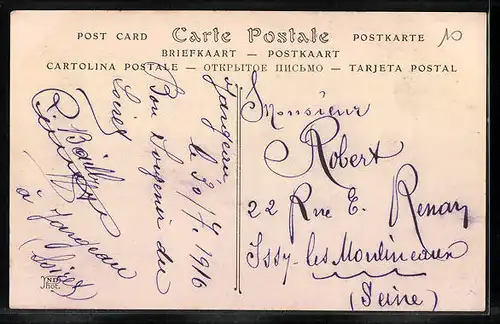 10
POST CARD Carte Postale POSTKARTE
BRIEFKAART — POSTKAART
CARTOLINA POSTALE — ОТКРЫТОЕ ПИСЬМО — TARJETA POSTAL
Jargeau
le 30/7/1916
Bon Souvenir du
Loiret
à Jargeau
(Loiret)
Monsieur
Robert
22 Rue E. Renan
Issy-les-Moulineaux
(Seine)